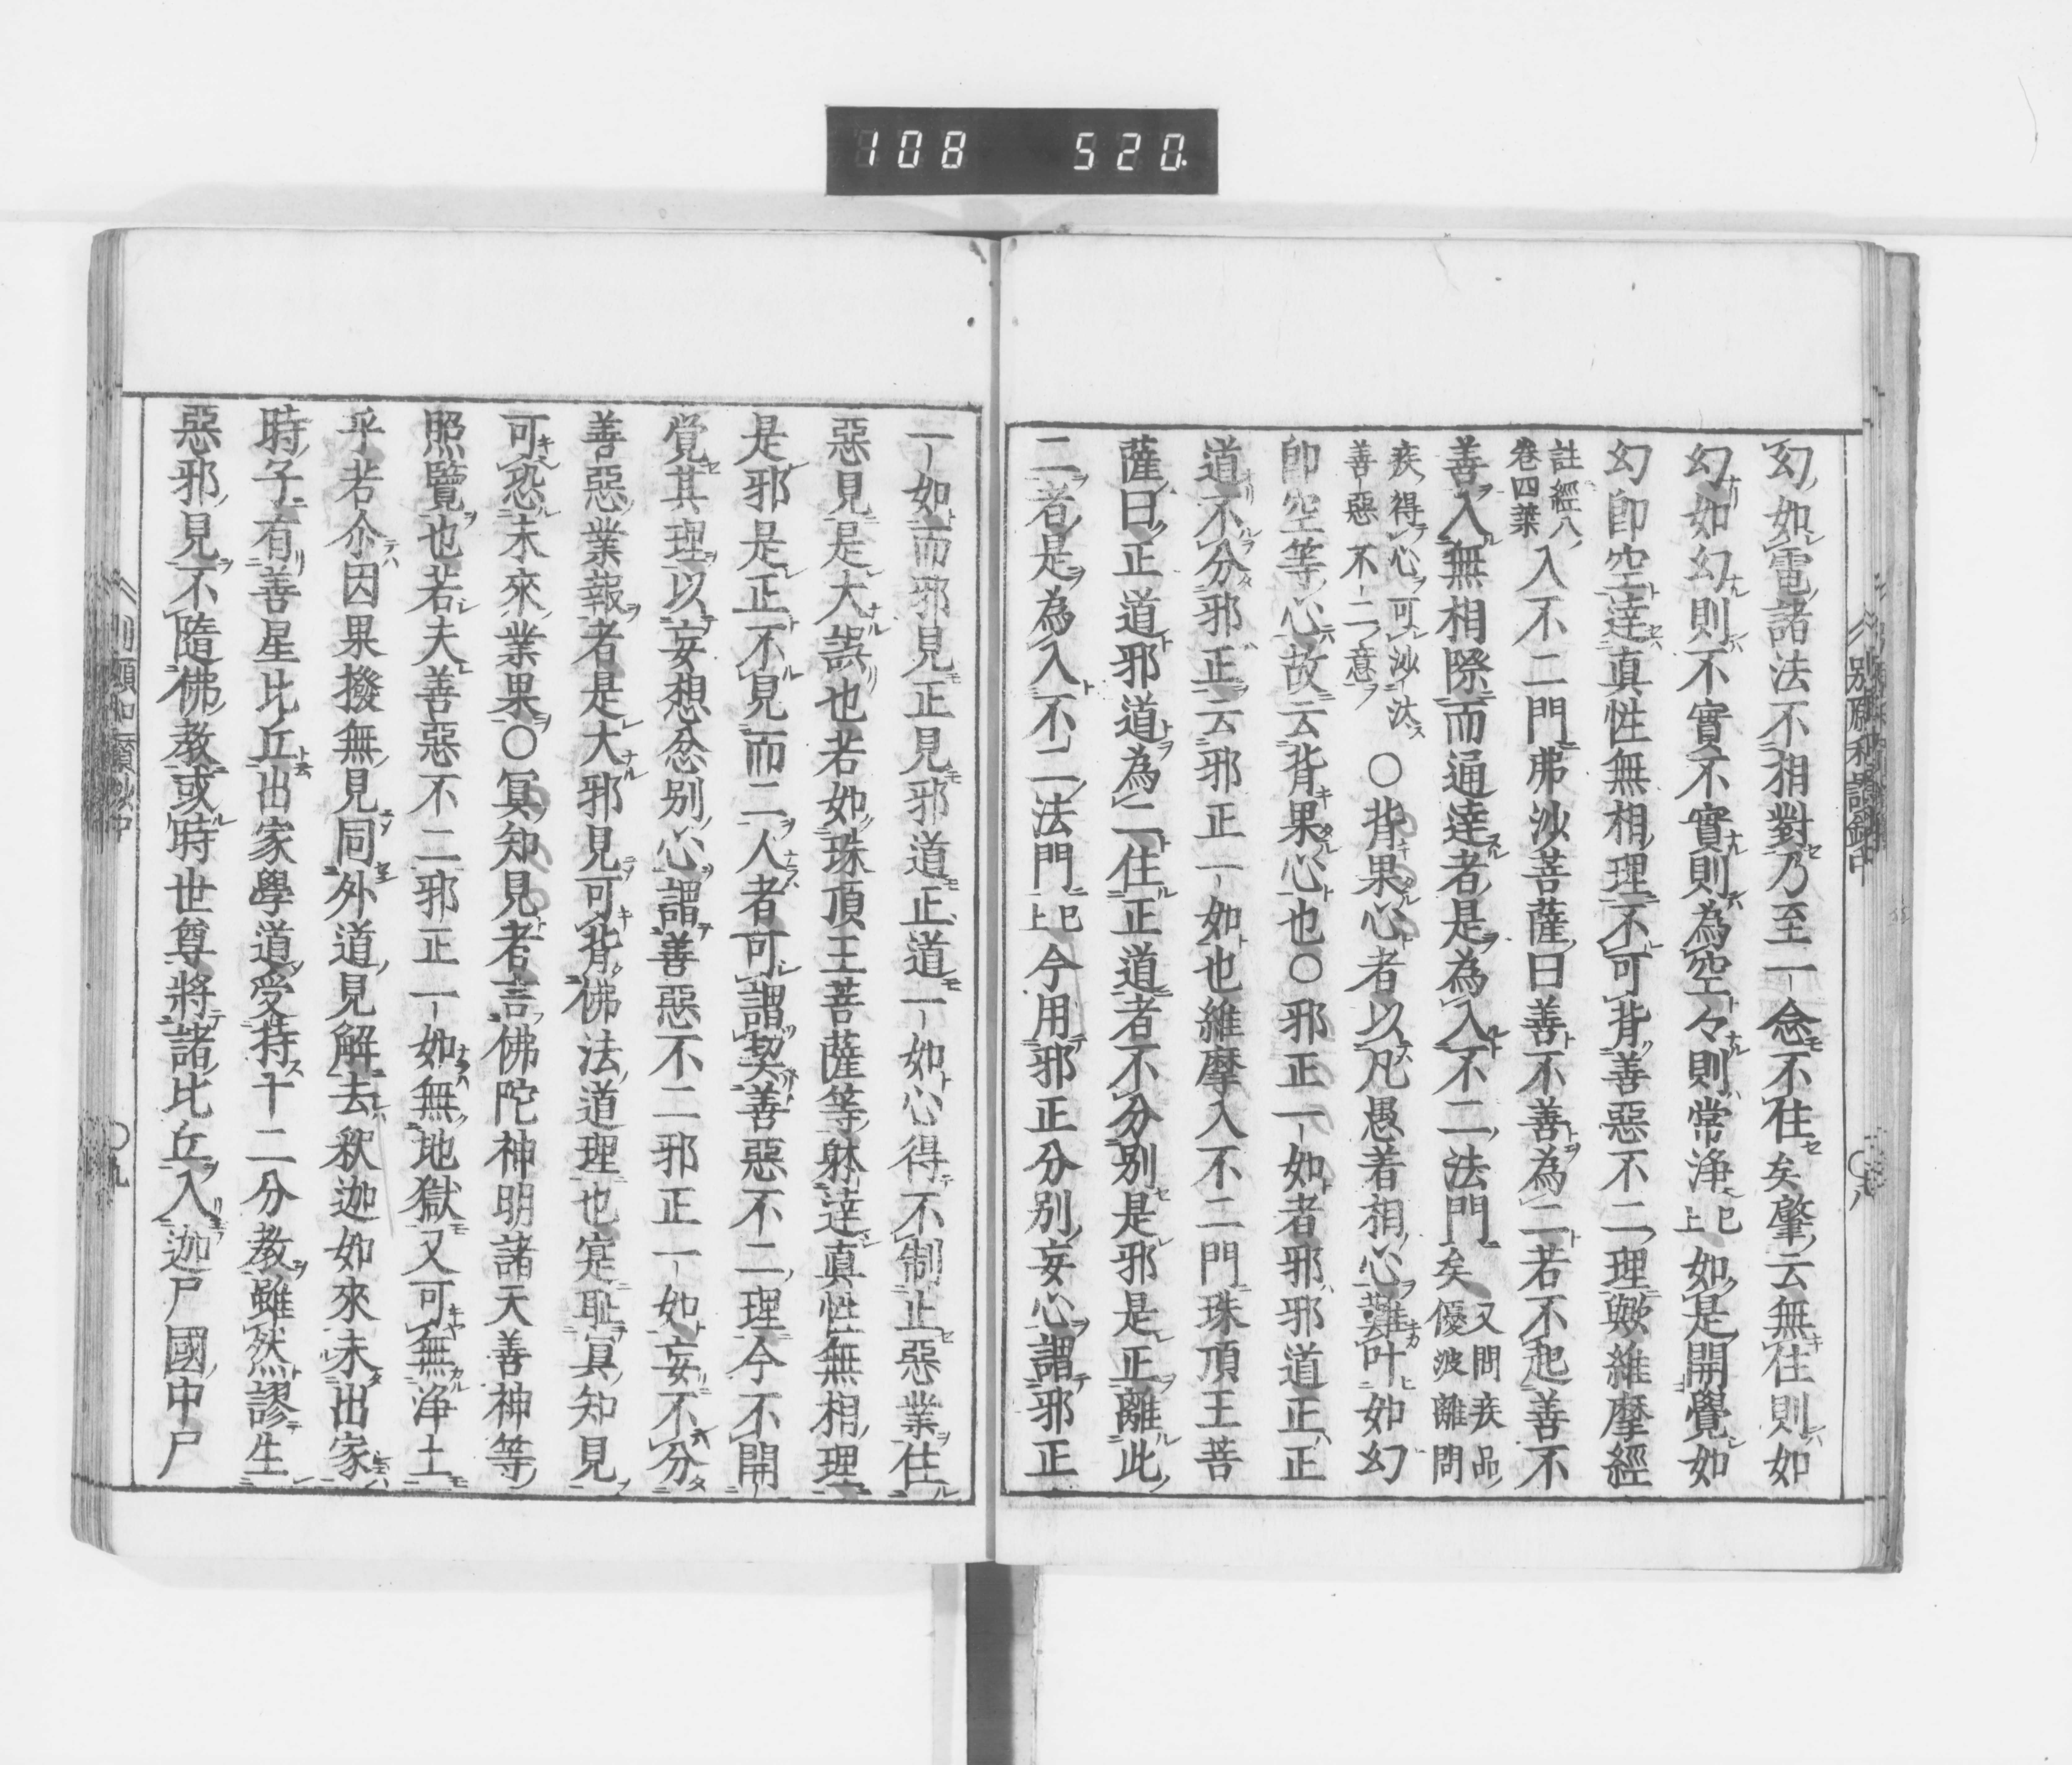 108 520.
幻如電諸法不相對乃至一念不住矣肇云無住則如
幻如幻則不實不實則為空々則常浄已上如是開覺如
幻卽空達真性無相理不可背善惡不二理歟維摩經
註經八卷四葉入不二門弗沙菩薩曰善不善為二若不起善不
善入無相際而通達者是為入不二法門矣又問疾品優波離問
疾得心可沙汰善惡不二意〇背果心者以凡愚着相心難叶如幻
卽空等心故云背果心也〇邪正一如者邪邪道正正
道不分邪正云邪正一如也維摩入不二門珠頂王菩
薩曰正道邪道為二住正道者不分別是邪是正離此
二者是為入不二法門已上今用邪正分別妄心謂邪正
一如而邪見正見邪道正道一如心得不制止惡業住
惡見是大誤也若如珠頂王菩薩等躰達真性無相理
是邪是正不見而二人者可謂契善惡不二理今不開
覚其理以妄想忿別心謂善惡不二邪正一如妄不分
善惡業報者是大邪見可背佛法道理也寔耻冥知見
可恐未來業果〇冥知見者言佛陀神明諸天善神等
照覽也若夫善惡不二邪正一如無地獄又可無浄土
乎若尒因果撥無見同外道見解去釈迦如來未出家
時子有善星比丘出家學道受持十二分教雖然謬生
惡邪見不隨佛教或時世尊將諸比丘入迦尸國中尸
別願和讃鈔中
〇八
〇九